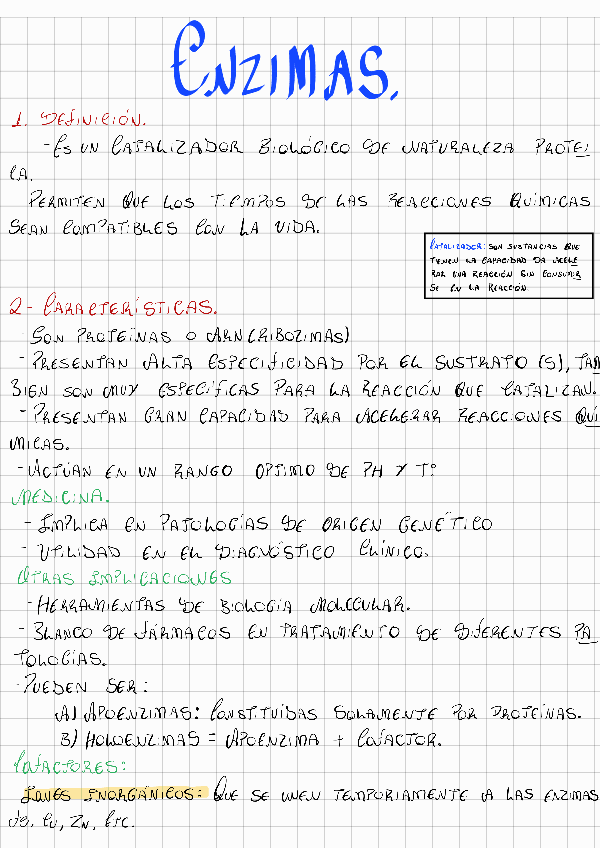 Enzimas.
1. Definición.
- Es un catalizador biológico de naturaleza protei
ca.
Permiten que los tiempos de las reacciones químicas
sean compatibles con la vida.
Catalizador: son sustancias que
tienen la capacidad da acele
rar una reacción sin consumir
se en la reacción.
2- Características.
- Son proteínas o ARN (ribozimas)
- Presentan alta especificidad por el sustrato (s), tam
bien son muy específicas para la reacción que catalizan.
- Presentan gran capacidad para acelerar reacciones quí
micas.
- Actúan en un rango optimo de pH y Tº
Medicina.
- Implica en patologías de origen genético
- Utilidad en el diagnóstico clínico.
Otras implicaciones
- Herramientas de biología molecular.
- Blanco de fármacos en tratamiento de diferentes pa
tologías.
- Pueden ser:
A) Apoenzimas: constituidas solamente por proteínas.
B) Holoenzimas = Apoenzima + Cofactor.
Cofactores:
Iones inorgánicos: que se unen temporiamente a las enzimas
Cu, Zn, Etc.